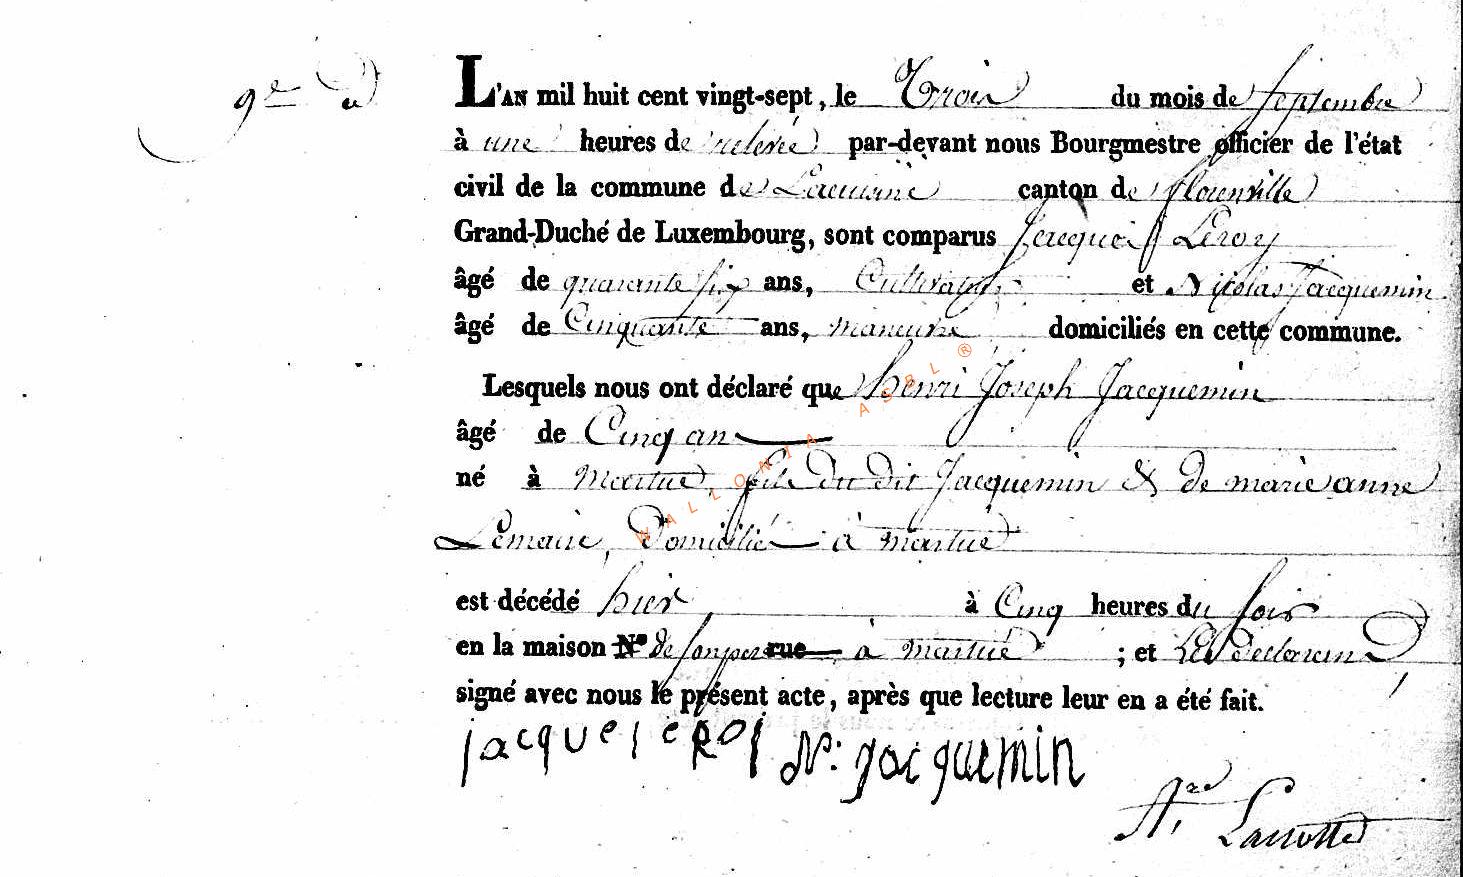 9e d
L'AN mil huit cent vingt-sept, le Trois du mois de septembre
à une heures de relevée par-devant nous Bourgmestre officier de l'état
civil de la commune de Lacuisine canton de florenville
Grand-Duché de Luxembourg, sont comparus Jacque Leroy
âgé de quarante six ans, Cultivateur et Nicolas Jacquemin
âgé de Cinquante ans, manœuvre domiciliés en cette commune.
Lesquels nous ont déclaré que henri Joseph Jacquemin
âgé de Cinq an
né à Martué, fils du dit Jacquemin & de marie anne
Lemaire, Domicilié à martué
est décédé hier à Cinq heures du soir
en la maison N° de son per rue à martué ; et Les declarans
signé avec nous le présent acte, après que lecture leur en a été fait.
jacque leroy N: jacquemin
WALLONIA ASBL ®